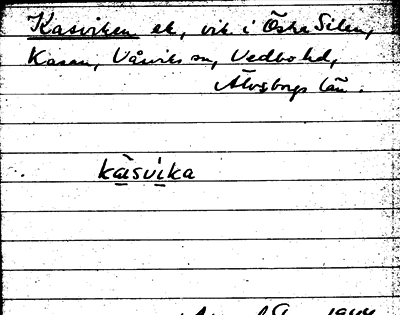 Kasviken ek, vik i Östra Silen,
Kasan, Vårviks sn, Vedbo hd,
Älvsborgs län.
kàsvika
1944